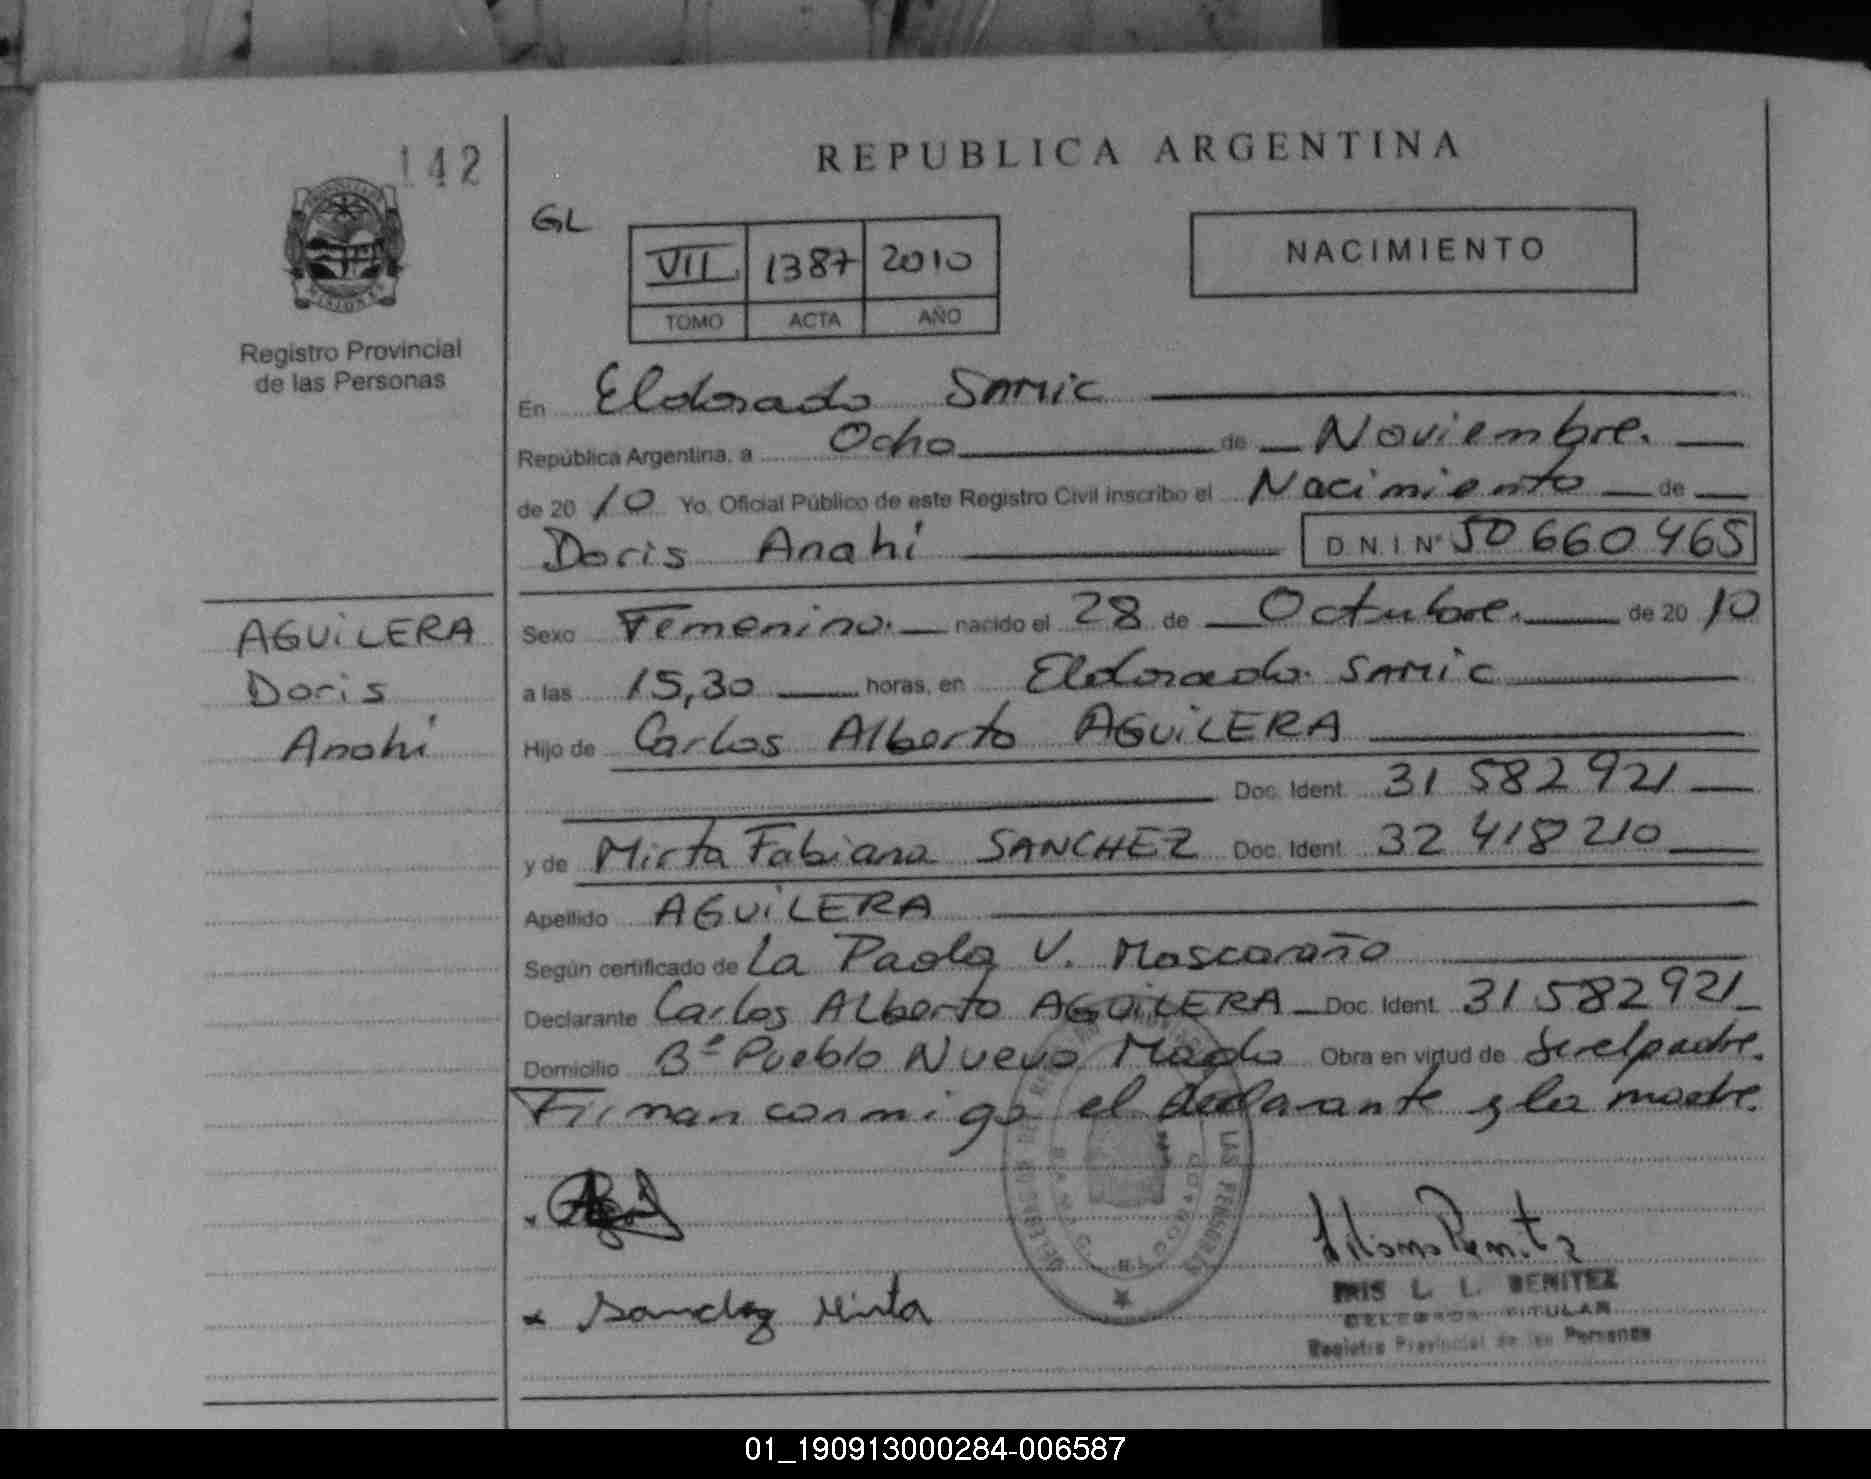 142
REPUBLICA ARGENTINA
GL
VII 1387 2010
TOMO ACTA AÑO
NACIMIENTO
Registro Provincial
de las Personas
En Eldorado SAMIC
República Argentina, a Ocho de Noviembre.
de 20 10 Yo, Oficial Público de este Registro Civil inscribo el Nacimiento de
Doris Anahi D.N.I.Nº 50 660 465
AGUILERA
Doris
Anahi
Sexo Femenino. nacido el 28 de Octubre. de 20 10
a las 15,30 horas, en Eldorado. SAMIC
Hijo de Carlos Alberto AGUILERA
Doc. Ident. 31 582 921
y de Mirta Fabiana SANCHEZ Doc. Ident. 32 418 210
Apellido AGUILERA
Según certificado de La Paola V.
Declarante Carlos Alberto AGUILERA Doc. Ident. 31 582 921
Domicilio Bº Pueblo Nuevo Mado Obra en virtud de Ser el padre.
Firman conmigo el declarante y la madre.
Sanchez Mirta
IRIS L. L. BENITEZ
DELEGADA TITULAR
Registro Provincial de las Personas
01_190913000284-006587